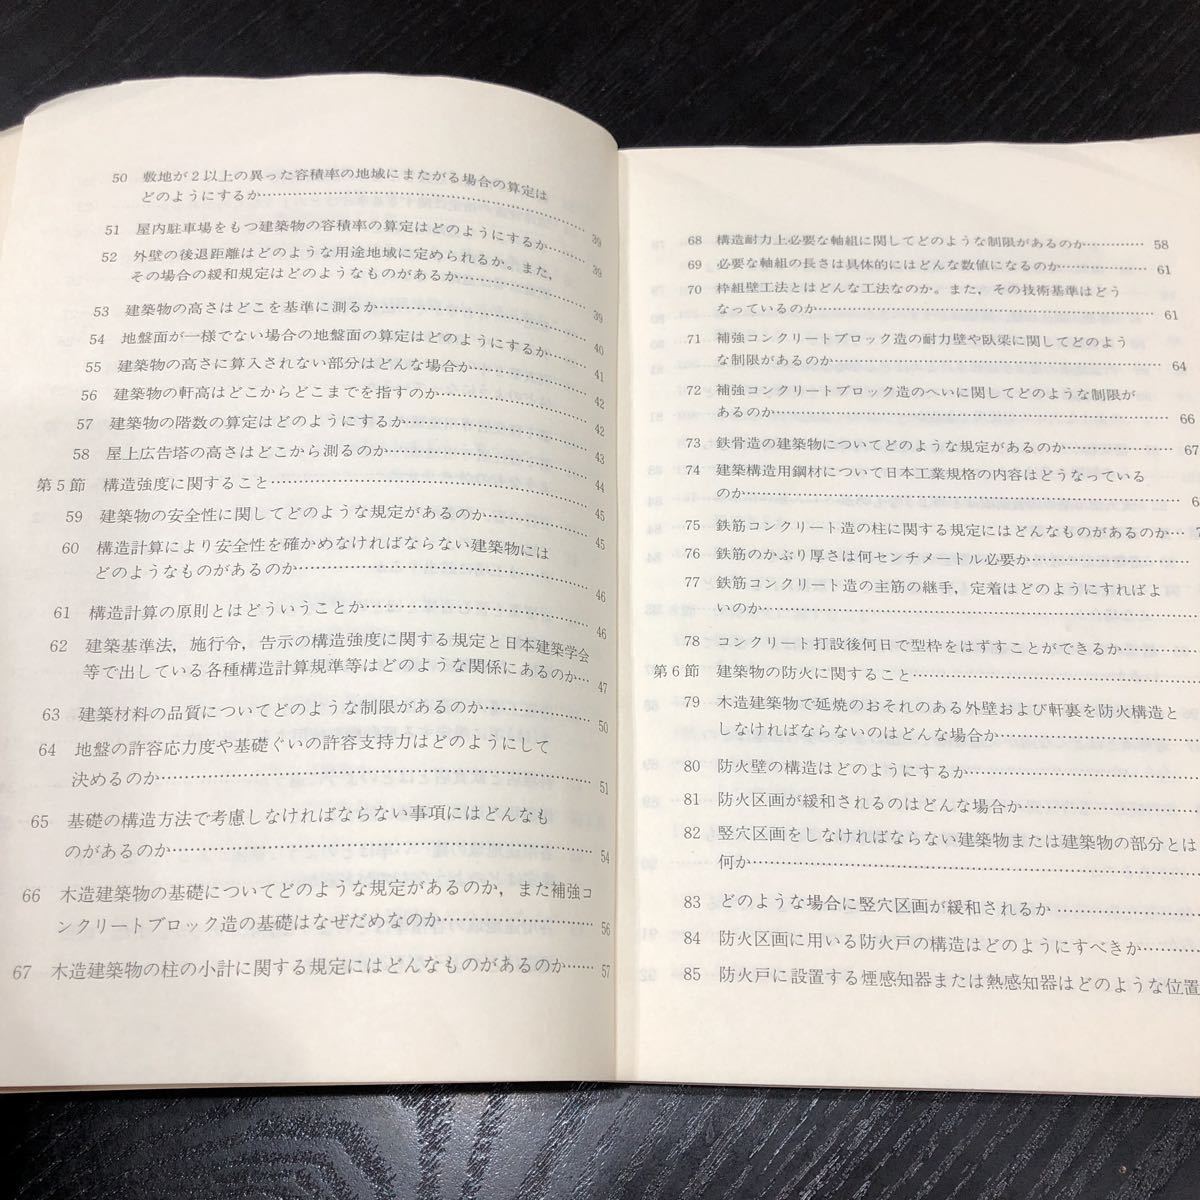 50 敷地が2以上の異った容積率の地域にまたがる場合の算定は
どのようにするか……39
51 屋内駐車場をもつ建築物の容積率の算定はどのようにするか……39
52 外壁の後退距離はどのような用途地域に定められるか。また,
その場合の緩和規定はどのようなものがあるか……39
53 建築物の高さはどこを基準に測るか……40
54 地盤面が一様でない場合の地盤面の算定はどのようにするか……41
55 建築物の高さに算入されない部分はどんな場合か……42
56 建築物の軒高はどこからどこまでを指すのか……42
57 建築物の階数の算定はどのようにするか……43
58 屋上広告塔の高さはどこから測るのか……44
第5節 構造強度に関すること……45
59 建築物の安全性に関してどのような規定があるのか……45
60 構造計算により安全性を確かめなければならない建築物には
どのようなものがあるのか……46
61 構造計算の原則とはどういうことか……46
62 建築基準法, 施行令, 告示の構造強度に関する規定と日本建築学会
等で出している各種構造計算規準等はどのような関係にあるのか…47
63 建築材料の品質についてどのような制限があるのか……50
64 地盤の許容応力度や基礎ぐいの許容支持力はどのようにして
決めるのか……51
65 基礎の構造方法で考慮しなければならない事項にはどんなも
のがあるのか……54
66 木造建築物の基礎についてどのような規定があるのか, また補強コ
ンクリートブロック造の基礎はなぜだめなのか……56
67 木造建築物の柱の小計に関する規定にはどんなものがあるのか……57
68 構造耐力上必要な軸組に関してどのような制限があるのか……58
69 必要な軸組の長さは具体的にはどんな数値になるのか……61
70 枠組壁工法とはどんな工法なのか。また, その技術基準はどう
なっているのか……61
71 補強コンクリートブロック造の耐力壁や臥梁に関してどのよう
な制限があるのか……64
72 補強コンクリートブロック造のへいに関してどのような制限が
あるのか……66
73 鉄骨造の建築物についてどのような規定があるのか……67
74 建築構造用鋼材について日本工業規格の内容はどうなっている
のか……6
75 鉄筋コンクリート造の柱に関する規定にはどんなものがあるのか…
76 鉄筋のかぶり厚さは何センチメートル必要か……
77 鉄筋コンクリート造の主筋の継手, 定着はどのようにすればよ
いのか……
78 コンクリート打設後何日で型枠をはずすことができるか……
第6節 建築物の防火に関すること……
79 木造建築物で延焼のおそれのある外壁および軒裏を防火構造と
しなければならないのはどんな場合か……
80 防火壁の構造はどのようにするか……
81 防火区画が緩和されるのはどんな場合か……
82 竪穴区画をしなければならない建築物または建築物の部分とは
何か……
83 どのような場合に竪穴区画が緩和されるか……
84 防火区画に用いる防火戸の構造はどのようにすべきか……
85 防火戸に設置する煙感知器または熱感知器はどのような位置